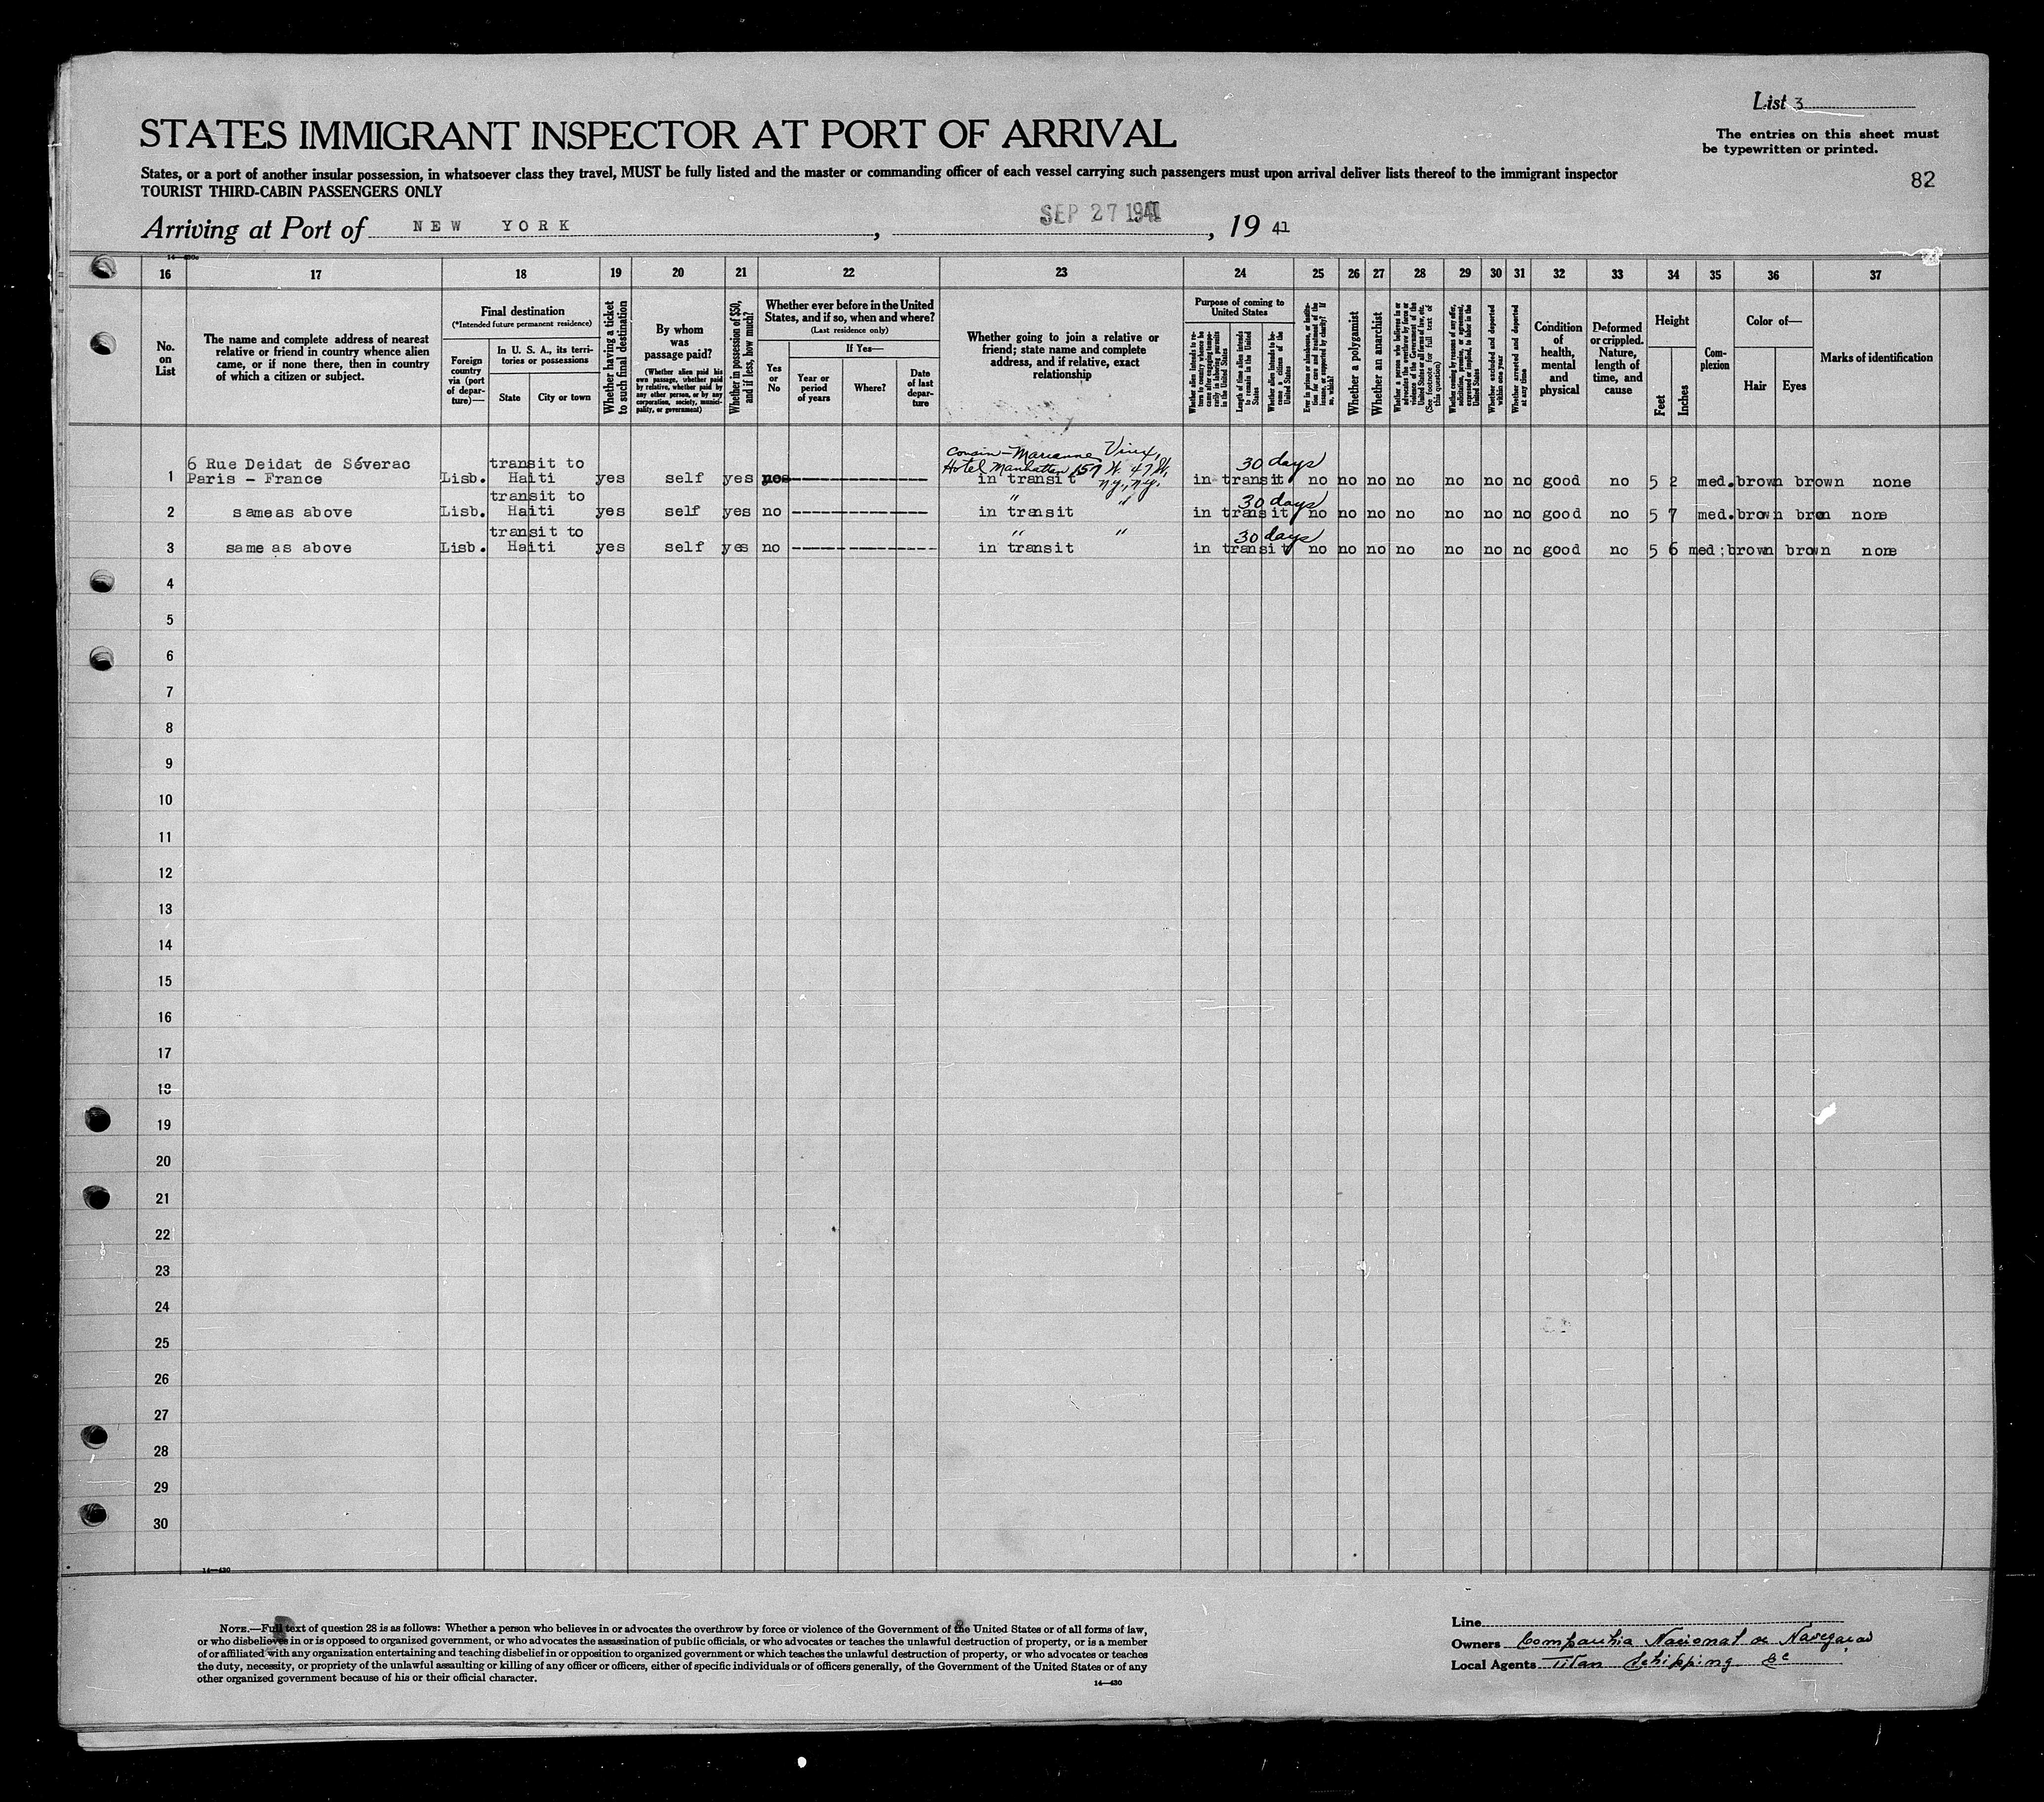 List 3
STATES IMMIGRANT INSPECTOR AT PORT OF ARRIVAL
The entries on this sheet must
be typewritten or printed.
States, or a port of another insular possession, in whatsoever class they travel, MUST be fully listed and the master or commanding officer of each vessel carrying such passengers must upon arrival deliver lists thereof to the immigrant inspector
TOURIST THIRD-CABIN PASSENGERS ONLY
82
Arriving at Port of NEW YORK, SEP 27 1941, 19 41
16 17 18 19 20 21 22 23 24 25 26 27 28 29 30 31 32 33 34 35 36 37
No. on List
The name and complete address of nearest
relative or friend in country whence alien
came, or if none there, then in country
of which a citizen or subject.
Final destination
(*Intended future permanent residence)
Foreign country via (port of departure)—
In U. S. A., its territories or possessions
State
City or town
Whether having a ticket to such final destination
By whom was passage paid?
(Whether alien paid his own passage, whether paid by relative, whether paid by any other person, or by any corporation, society, municipality, or government)
Whether in possession of $50, and if less, how much?
Whether ever before in the United States, and if so, when and where?
(Last residence only)
Yes or No
If Yes—
Year or period of years
Where?
Date of last departure
Whether going to join a relative or
friend; state name and complete
address, and if relative, exact
relationship
Purpose of coming to United States
Whether alien intends to return to country whence he came after engaging temporarily in laboring pursuits in the United States
Length of time alien intends to remain in the United States
Whether alien intends to become a citizen of the United States
Ever in prison or almshouse, or institution for care and treatment of the insane, or supported by charity? If so, which?
Whether a polygamist
Whether an anarchist
Whether a person who believes in or advocates the overthrow by force or violence of the Government of the United States or all forms of law, etc. (See footnote for full text of this question)
Whether coming by reasons of any offer, solicitation, promise, or agreement, expressed or implied, to labor in the United States
Whether excluded and deported within one year
Whether arrested and deported at any time
Condition of health, mental and physical
Deformed or crippled. Nature, length of time, and cause
Height
Feet
Inches
Complexion
Color of—
Hair
Eyes
Marks of identification
1 6 Rue Deidat de Séverac
Paris - France Lisb. transit to Haiti yes self yes no cousin - Marianne Vieux,
Hotel Manhattan 157 W. 47 St.
in transit N.Y., N.Y. in transit 30 days no no no no no no no good no 5 2 med. brown brown none
2 same as above Lisb. transit to Haiti yes self yes no " " in transit in transit 30 days no no no no no no no good no 5 7 med. brown none
3 same as above Lisb. transit to Haiti yes self yes no " " in transit in transit 30 days no no no no no no no good no 5 6 med; brown brown none
4
5
6
7
8
9
10
11
12
13
14
15
16
17
18
19
20
21
22
23
24
25
26
27
28
29
30
14—430
NOTE.—Full text of question 28 is as follows: Whether a person who believes in or advocates the overthrow by force or violence of the Government of the United States or of all forms of law,
or who disbelieves in or is opposed to organized government, or who advocates the assassination of public officials, or who advocates or teaches the unlawful destruction of property, or is a member
of or affiliated with any organization entertaining and teaching disbelief in or opposition to organized government or which teaches the unlawful destruction of property, or who advocates or teaches
the duty, necessity, or propriety of the unlawful assaulting or killing of any officer or officers, either of specific individuals or of officers generally, of the Government of the United States or of any
other organized government because of his or their official character.
14—430
Line
Owners Companhia Nacional de Navegacao
Local Agents Titan Schipping Cc